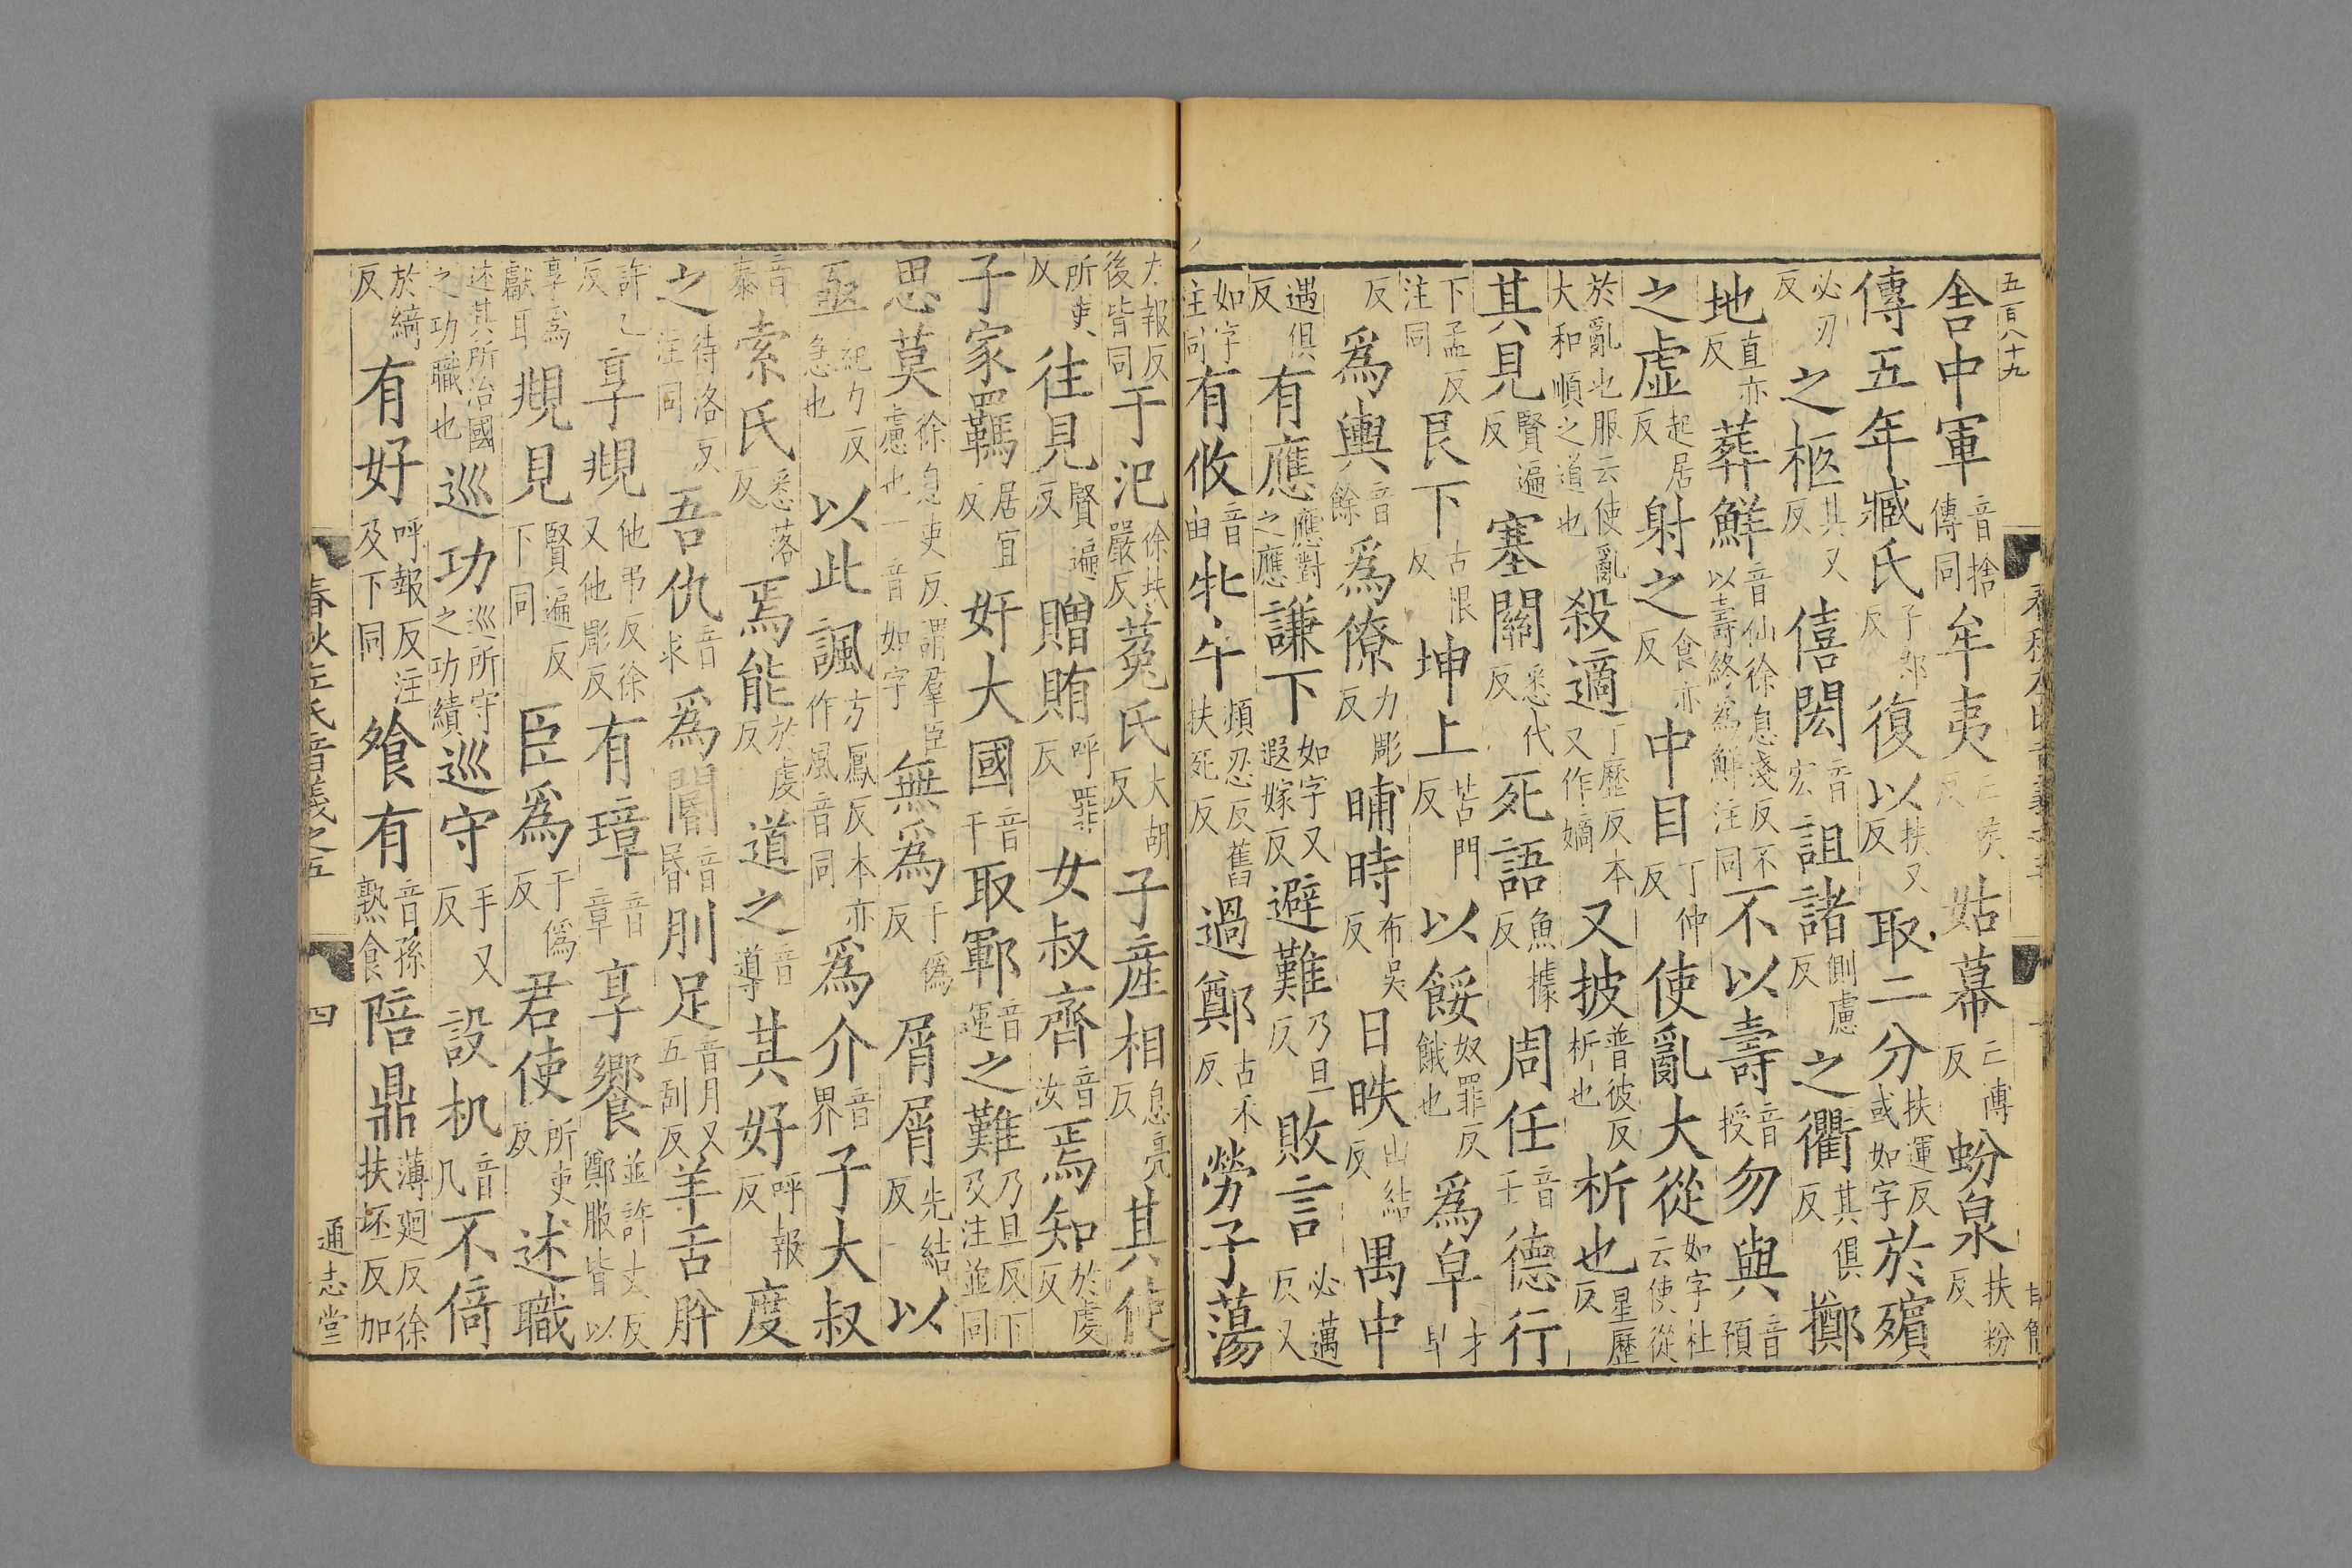 五百八十九
舍中軍音捨傳同牟夷亡侯反姑幕亡博反蚡泉扶粉反
傳五年臧氏子郎反復以扶又反取二分扶運反或如字於殯
必刃反之柩其又反僖閎音宏詛諸側慮反之衢其俱反擲
地直亦反葬鮮音仙徐息淺反不以壽終為鮮注同不以壽音授勿與音預
之虛起居反射之食亦反中目丁仲反使亂大從如字杜云使從
於亂也服云使亂大和順之道也殺適丁歷反本又作嫡又披普彼反析也析也星歷反
其見賢遍反塞關悉代反死語魚據反周任音壬德行
下孟反注同艮下古恨反坤上苦門反以餒奴罪反餓也為皁才早
反為輿音餘為僚力彫反晡時布吳反日昳田結反禺中
遇俱反有應應對之應謙下如字又遐嫁反避難乃旦反敗言必邁反又
如字注同有攸音由牝牛頻忍反舊扶死反過鄭古禾反勞子蕩
力報反後皆同于汜徐扶嚴反菟氏大胡反子產相息亮反其使
所吏反往見賢遍反贈賄呼罪反女叔齊音汝焉知於虔反
子家羈居宜反奸大國音干取鄆音運之難乃旦反下及注並同
思莫徐息吏反謂羣臣慮也一音如字無為于偽反屑屑先結反以
亟紀力反急也以此諷方鳳反本亦作風音同為介音界子大叔
音泰索氏悉落反焉能於虔反道之音導其好呼報反度
之待洛反注同吾仇音求為閽音昏刖足音月又五刮反羊舌肸
許乙反享覜他弔反徐又他彫反有璋音章享饗並許丈反鄭服皆以
享為獻耳覜見賢遍反下同臣為于偽反君使所吏反述職
述其所治國之功職也巡功巡所守之功績巡守手又反設机音几不倚
於綺反有好呼報反注及下同飧有音孫熟食陪鼎薄廻反徐扶坯反加
春秋左氏音義之五
四
通志堂